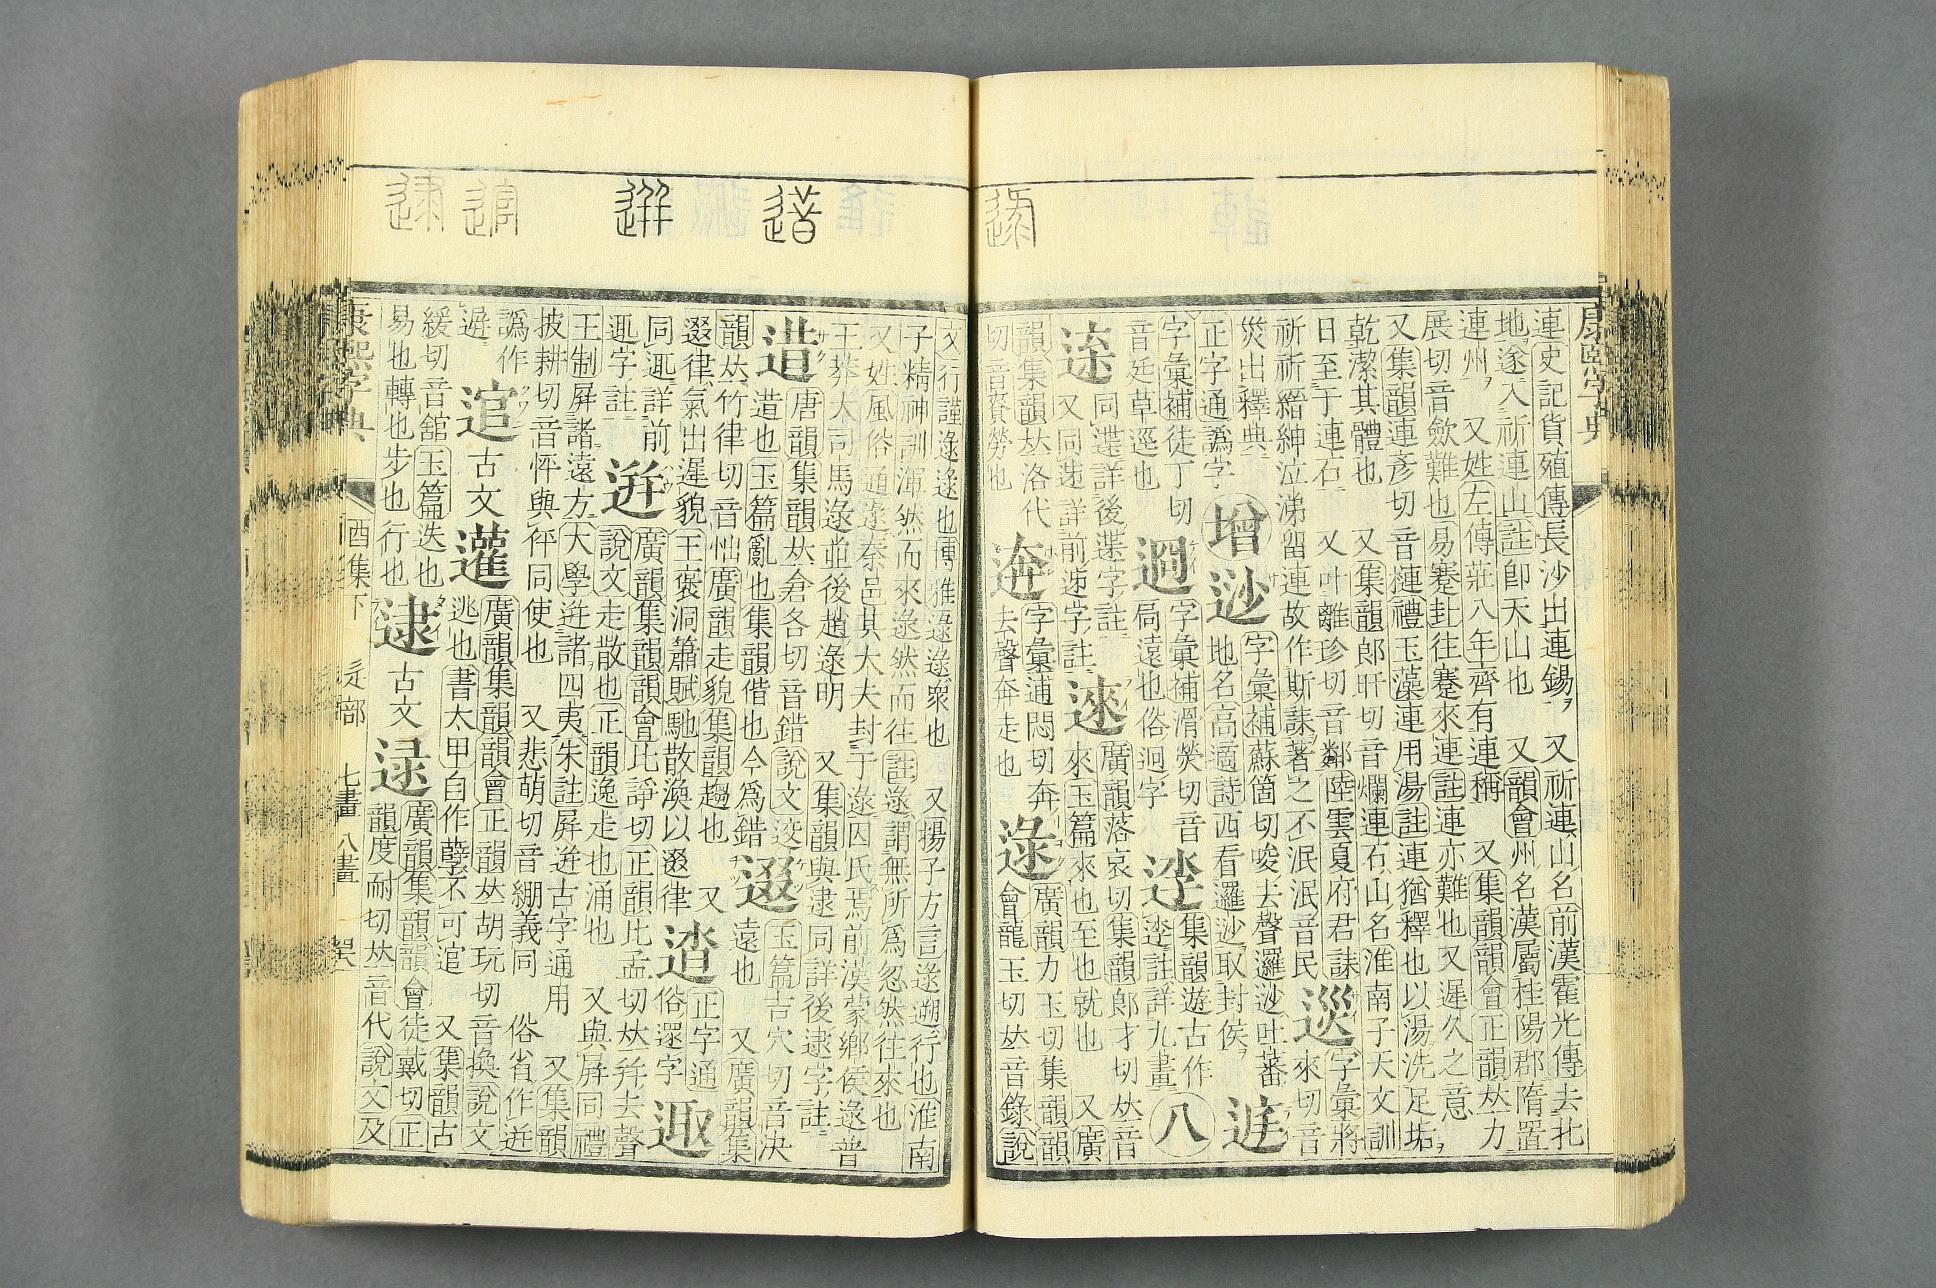 康熙字典
連史記貨殖傳長沙出連錫又祈連山名前漢霍光傳去北
地遂入祈連山註卽天山也又韻會州名漢屬桂陽郡隋置
連州又姓左傳莊八年齊有連稱又集韻韻會正韻𠀤力
展切音歛難也易蹇卦往蹇來連註連亦難也又遲久之意
又集韻連彥切音摙禮玉藻連用湯註連猶釋也以湯洗足垢
乾潔其體也又集韻郞旰切音爛連石山名淮南子天文訓
日至于連石又叶離珍切音鄰陸雲夏府君誄
祈祈縉紳泣涕留連故作斯誄著之不泯泯音民
字彙將
來切音
災出釋典
正字通譌字
增
逤
字彙補蘇箇切唆去聲邏逤吐蕃
地名高適詩西看邏逤取封侯
字彙補徒丁切
音廷草逕也
逥
字彙補渭熒切音
局遠也俗迥字
集韻遊古作
逕註詳九畫
八
同遝詳後遝字註
又同逮詳前逮字註
逨
廣韻落哀切集韻郞才切𠀤音
來玉篇來也至也就也又廣
韻集韻𠀤洛代
切音賚勞也
逩
字彙逋悶切奔
去聲奔走也
逯
廣韻力玉切集韻韻
會龍玉切𠀤音錄說
文行謹逯逯也博雅逯逯衆也又揚子方言逯遡行也淮南
子精神訓渾然而來逯然而往註逯謂無所爲忽然往來也
又姓風俗通逯秦邑其大夫封于逯因氏焉前漢蒙鄕侯逯普
王莽大司馬逯並後趙逯明又集韻與逮同詳後逮字註
逪
唐韻集韻𠀤倉各切音錯說文
逪也玉篇亂也集韻偕也今爲錯
玉篇古穴切音決
遠也又廣韻集
韻𠀤竹律切音怞廣韻走貌集韻趨也又
逫律氣出遲貌王褒洞簫賦馳散渙以逫律
正字通
俗遝字
同迺詳前
迺字註
逬
廣韻集韻韻會比諍切正韻比孟切𠀤幷去聲
說文走散也正韻逸走也涌也又與屛同禮
王制屛諸遠方大學逬諸四夷朱註屛逬古字通用又集韻
披耕切音怦與伻同使也又悲萌切音繃義同俗省作迸
譌作
逰
逭
古文
𨙅
廣韻集韻韻會正韻𠀤胡玩切音換說文
逃也書太甲自作孼不可逭又集韻古
緩切音舘玉篇迭也
易也轉也步也行也
逮
古文
廣韻集韻韻會徒戴切正
韻度耐切𠀤音代說文及
康熙字典
酉集下
辵部
七畫
八畫